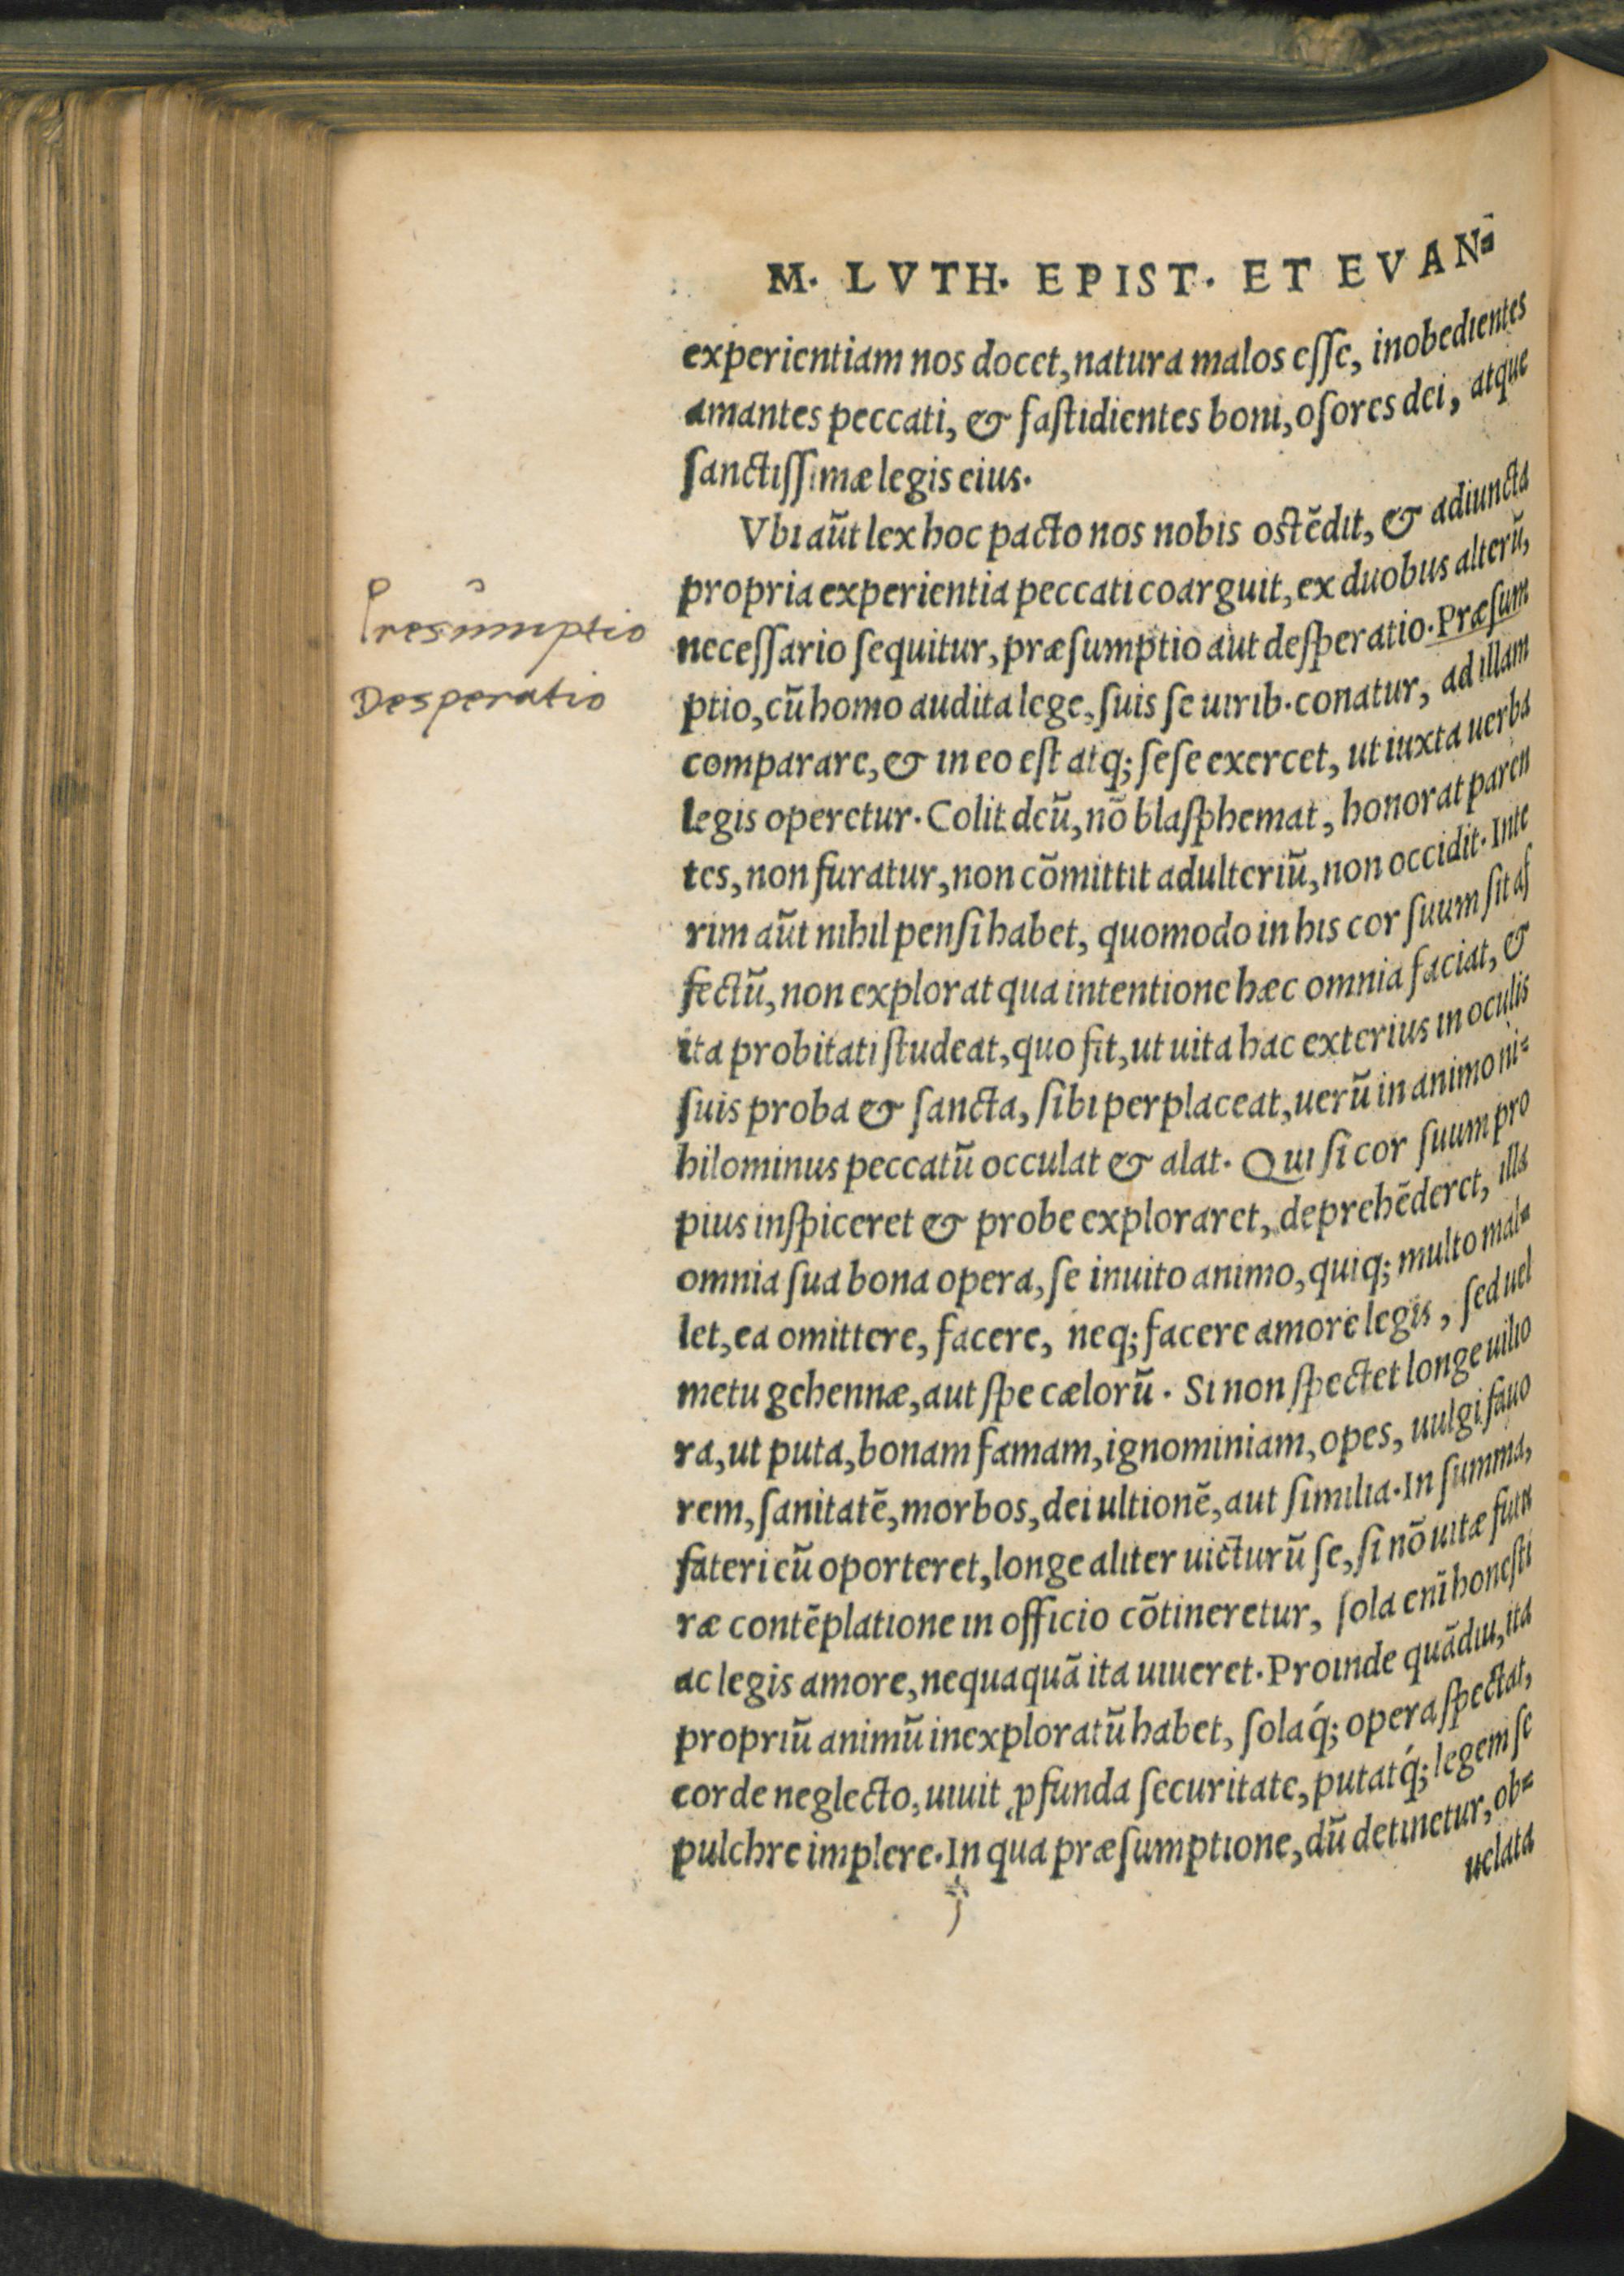 M. LVTH. EPIST. ET EVAN⸗
experientiam nos docet, natura malos eſſe, inobedientes
amantes peccati, & faſtidientes boni, oſores dei, atque
ſanctiſſimæ legis eius.
Vbi aūt lex hoc pacto nos nobis oſtēdit, & adiuncta
propria experientia peccati coarguit, ex duobus alterū,
neceſſario ſequitur, præſumptio aut deſperatio. Præſum
ptio, cū homo audita lege, ſuis ſe uirib. conatur, ad illam
comparare, & in eo eſt atq; ſeſe exercet, ut iuxta uerba
legis operetur. Colit deū, nō blaſphemat, honorat paren
tes, non furatur, non cōmittit adulteriū, non occidit. Inte
rim aūt nihil penſi habet, quomodo in his cor ſuum ſit af
fectū, non explorat qua intentione hæc omnia faciat, &
ita probitati ſtudeat, quo fit, ut uita hac exterius in oculis
ſuis proba & ſancta, ſibi perplaceat, uerū in animo ni⸗
hilominus peccatū occulat & alat. Qui ſi cor ſuum pro
pius inſpiceret & probe exploraret, deprehēderet, illa
omnia ſua bona opera, ſe inuito animo, quiq; multo mal⸗
let, ea omittere, facere, neq; facere amore legis, ſed uel
metu gehennæ, aut ſpe cælorū. Si non ſpectet longe uilio
ra, ut puta, bonam famam, ignominiam, opes, uulgi fauo
rem, ſanitatē, morbos, dei ultionē, aut ſimilia. In ſumma,
fateri eū oporteret, longe aliter uicturū ſe, ſi nō uitæ futu
ræ contēplatione in officio cōtineretur, ſola enī honeſti
ac legis amore, nequaquā ita uiueret. Proinde quādiu, ita
propriū animū inexploratū habet, ſolaq́; opera ſpectat,
corde neglecto, uiuit ꝓfunda ſecuritate, putatq́; legem ſe
pulchre implere. In qua præſumptione, dū detinetur, ob⸗
uelata
Presumptio
Desperatio